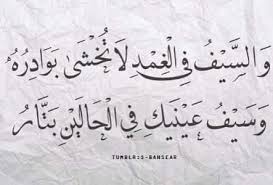 وَالسَّيْفُ فِي الْغِمْدِ لَا تُخْشَى بَوَادِرُهُ
وَسَيْفُ عَيْنَيْكِ فِي الْحَالَيْنِ بَتَّارُ
TUMBLR:S-BANSEAR